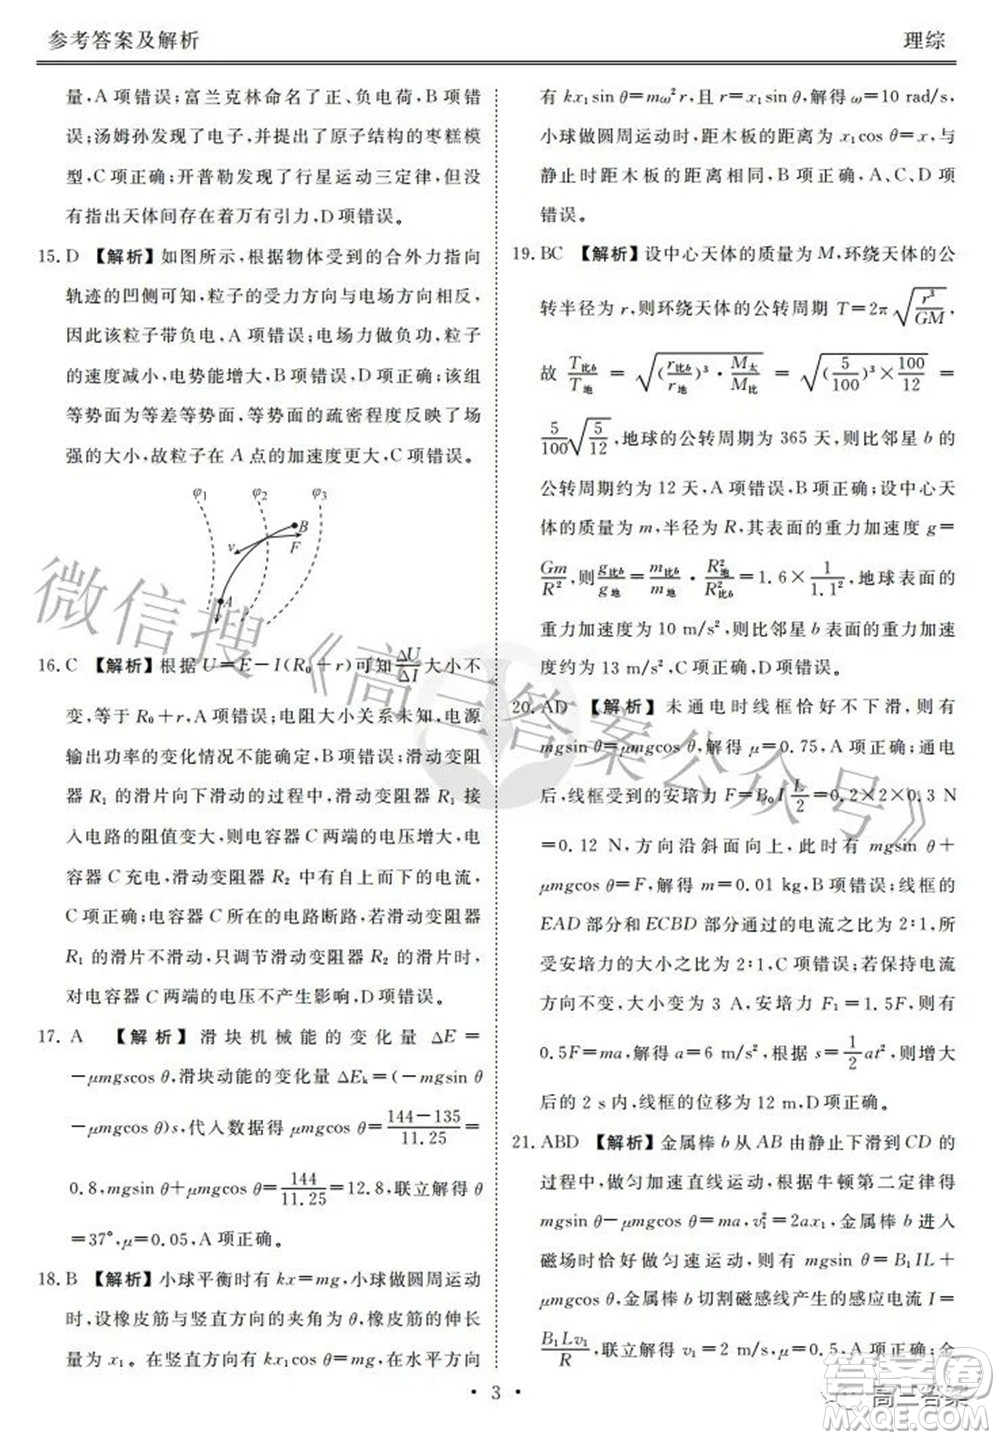 参考答案及解析
理综
量,A项错误;富兰克林命名了正、负电荷,B项错
误;汤姆孙发现了电子,并提出了原子结构的枣糕模
型,C项正确;开普勒发现了行星运动三定律,但没
有指出天体间存在着万有引力,D项错误。
15. D 【解析】如图所示,根据物体所受的合外力指向
轨迹的凹侧可知,粒子的受力方向与电场方向相反,
因此该粒子带负电,A项错误;电场力做负功,粒子
的速度减小,电势能增大,B项错误;该组
等势面为等差等势面,等势面的疏密程度反映了场
强的大小,故粒子在 A 点的加速度大,C项错误。
φ1 φ2 φ3
B
v F
A
16. C 【解析】根据 U=E-I(R₀+r)可知 ΔU/ΔI 大小不
变,等于 R₀+r,A项错误;电阻大小关系未知,电源
输出功率的变化情况不能确定,B项错误;滑动变阻
器 R₁ 的滑片向下滑动的过程中,滑动变阻器 R₁ 接
入电路的阻值变大,则电容器 C 两端的电压增大,电
容器 C 充电,滑动变阻器 R₂ 中有自上而下的电流,
C项正确;电容器 C 所在的支路断路,若滑动变阻器
R₁ 的滑片不滑动,只调节滑动变阻器 R₂ 的滑片时,
对电容器 C 两端的电压不产生影响,D项错误。
17. A 【解析】滑块机械能的变化量 ΔE=
-μmgscos θ,滑块动能的变化量 ΔEₖ=(-mgsin θ
-μmgcos θ)s,代入数据解得 μmgcos θ=(144-135)/11.25=
0.8,mgsin θ+μmgcos θ=144/11.25=12.8,联立解得 θ
=37°,μ=0.05,A项正确。
18. B 【解析】小球平衡时有 kx=mg,小球做圆周运动
时,设橡皮筋与竖直方向的夹角为 θ,橡皮筋的伸长
量为 x₁。在竖直方向有 kx₁cos θ=mg,在水平方向
有 kx₁sin θ=mω²r,且 r=x₁sin θ,解得 ω=10 rad/s,
小球做圆周运动时,距木板的距离为 x₁cos θ=x,与
静止时距木板的距离相同,B项正确,A、C、D项
错误。
19. BC 【解析】设中心天体的质量为 M,环绕天体的公
转半径为 r,则环绕天体的公转周期 T=2π√(r³/GM),
故 T比b/T地=√((r比b/r地)³·M太/M比)=√((5/100)³×100/12)=
5/100√(5/12),地球的公转周期为 365 天,则比邻星 b 的
公转周期约为 12 天,A项错误,B项正确;设中心天
体的质量为 m,半径为 R,其表面的重力加速度 g=
Gm/R²,则 g比b/g地=m比b/m地·R²地/R²比b=1.6×1/1.1²,地球表面的
重力加速度为 10 m/s²,则比邻星 b 表面的重力加速
度约为 13 m/s²,C项正确,D项错误。
20. AD 【解析】未通电时线框恰好不下滑,则有
mgsin θ=μmgcos θ,解得 μ=0.75,A项正确;通电
后,线框受到的安培力 F=B₀I L/2=0.2×2×0.3 N
=0.12 N,方向沿斜面向上,此时有 mgsin θ+
μmgcos θ=F,解得 m=0.01 kg,B项错误;线框的
EAD 部分和 ECBD 部分通过的电流之比为 2∶1,所
受安培力之比为 2∶1,C项错误;若保持电流
方向不变、大小变为 3 A,安培力 F₁=1.5F,则有
0.5F=ma,解得 a=6 m/s²,根据 s=1/2at²,则增大
后的 2 s 内,线框的位移为 12 m,D项正确。
21. ABD 【解析】金属棒 b 从 AB 由静止下滑到 CD 的
过程中,做匀加速直线运动,根据牛顿第二定律有
mgsin θ-μmgcos θ=ma,v₁²=2ax₁,金属棒 b 进入
磁场时恰好做匀速运动,则有 mgsin θ=B₁IL+
μmgcos θ,金属棒 b 切割磁感线产生的感应电流 I=
B₁Lv₁/R,联立解得 v₁=2 m/s,μ=0.5,A项正确;金
· 3 ·
微信搜《高三答案公众号》
高三答案
MXQE.COM